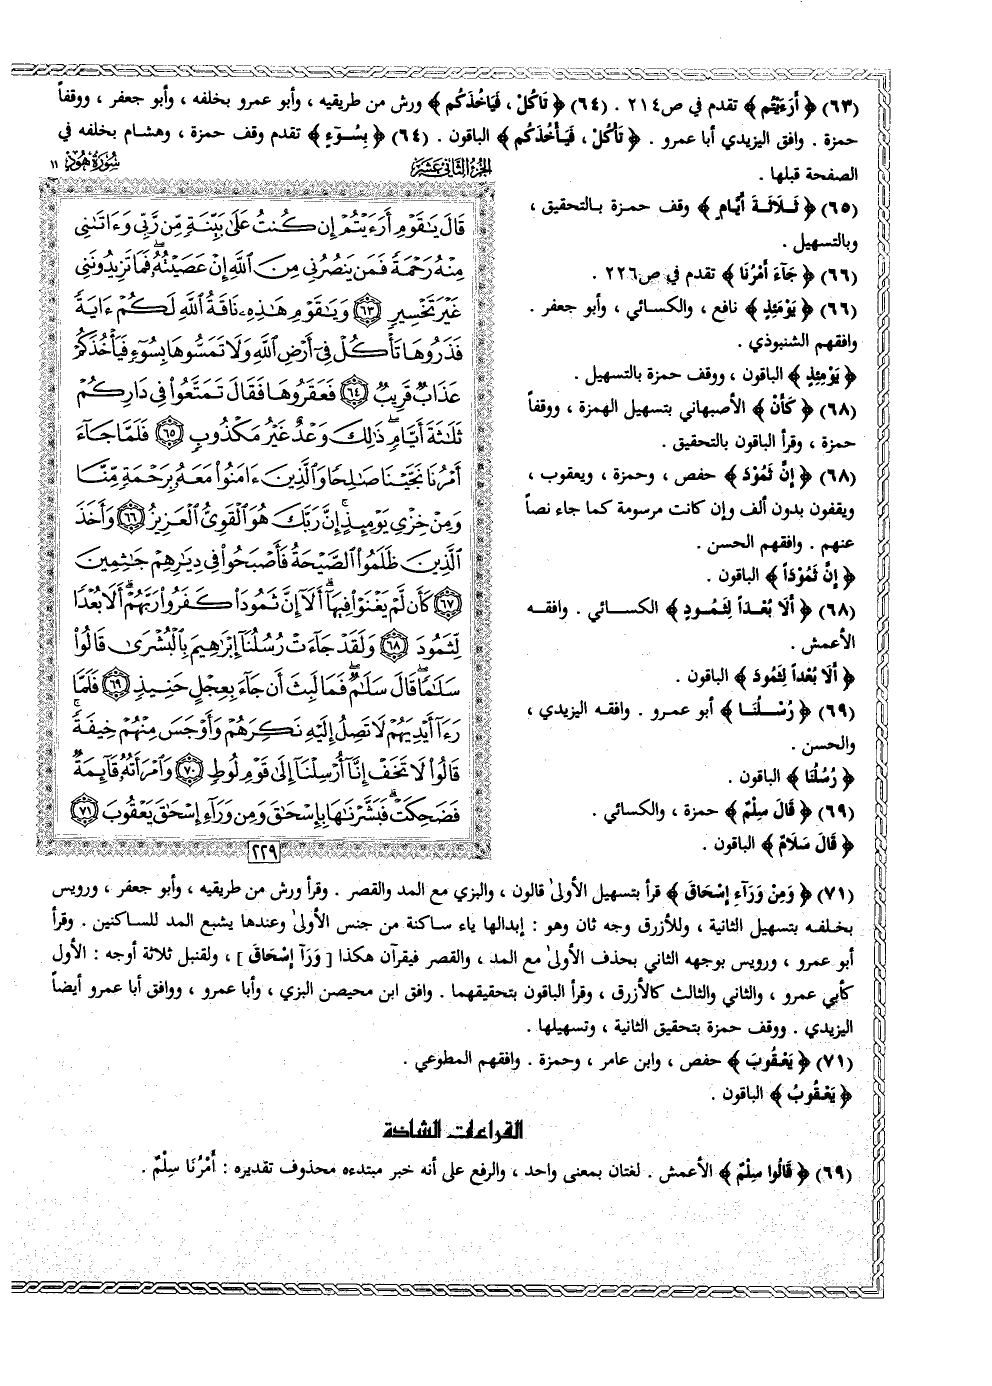 (٦٣) ﴿ أَرَءَيْتُم ﴾ تقدم في ص٢١٤ . (٦٤) ﴿ تَاكُلْ ، فَيَاخُذَكُم ﴾ ورش من طريقيه ، وأبو عمرو بخلفه ، وأبو جعفر ، ووقفاً
حمزة . وافق اليزيدي أبا عمرو . ﴿ تَأْكُلْ ، فَيَأْخُذَكُم ﴾ الباقون . (٦٤) ﴿ بِسُوٓءٍ ﴾ تقدم وقف حمزة ، وهشام بخلفه في
الصفحة قبلها .
(٦٥) ﴿ ثَلَاثَةَ أَيَّامٍ ﴾ وقف حمزة بالتحقيق ،
وبالتسهيل .
(٦٦) ﴿ جَآءَ أَمْرُنَا ﴾ تقدم في ص٢٢٦ .
(٦٦) ﴿ يَوْمَئِذٍ ﴾ نافع ، والكسائي ، وأبو جعفر .
وافقهم الشنبوذي .
﴿ يَوْمِئِذٍ ﴾ الباقون ، ووقف حمزة بالتسهيل .
(٦٨) ﴿ كَأَنْ ﴾ الأصبهاني بتسهيل الهمزة ، ووقفاً
حمزة ، وقرأ الباقون بالتحقيق .
(٦٨) ﴿ إِنَّ ثَمُودَ ﴾ حفص ، وحمزة ، ويعقوب ،
ويقفون بدون ألف وإن كانت مرسومة كما جاء نصاً
عنهم . وافقهم الحسن .
﴿ إِنَّ ثَمُودَاً ﴾ الباقون .
(٦٨) ﴿ أَلَا بُعْداً لِثَمُودٍ ﴾ الكسائي . وافقه
الأعمش .
﴿ أَلَا بُعْداً لِثَمُودَ ﴾ الباقون .
(٦٩) ﴿ رُسْلُنَا ﴾ أبو عمرو . وافقه اليزيدي ،
والحسن .
﴿ رُسُلُنَا ﴾ الباقون .
(٦٩) ﴿ قَالَ سِلْمٌ ﴾ حمزة ، والكسائي .
﴿ قَالَ سَلَامٌ ﴾ الباقون .
الجزء الثاني عشر
سورة هود ١١
قَالَ يَٰقَوْمِ أَرَءَيْتُمْ إِن كُنتُ عَلَىٰ بَيِّنَةٍ مِّن رَّبِّي وَءَاتَىٰنِي
مِنْهُ رَحْمَةً فَمَن يَنصُرُنِي مِنَ ٱللَّهِ إِنْ عَصَيْتُهُۥ فَمَا تَزِيدُونَنِي
غَيْرَ تَخْسِيرٍ ٦٣ وَيَٰقَوْمِ هَٰذِهِۦ نَاقَةُ ٱللَّهِ لَكُمْ ءَايَةً
فَذَرُوهَا تَأْكُلْ فِيٓ أَرْضِ ٱللَّهِ وَلَا تَمَسُّوهَا بِسُوٓءٍ فَيَأْخُذَكُمْ
عَذَابٌ قَرِيبٌ ٦٤ فَعَقَرُوهَا فَقَالَ تَمَتَّعُوا۟ فِي دَارِكُمْ
ثَلَٰثَةَ أَيَّامٍ ۖ ذَٰلِكَ وَعْدٌ غَيْرُ مَكْذُوبٍ ٦٥ فَلَمَّا جَآءَ
أَمْرُنَا نَجَّيْنَا صَٰلِحًا وَٱلَّذِينَ ءَامَنُوا۟ مَعَهُۥ بِرَحْمَةٍ مِّنَّا
وَمِنْ خِزْيِ يَوْمِئِذٍ ۗ إِنَّ رَبَّكَ هُوَ ٱلْقَوِيُّ ٱلْعَزِيزُ ٦٦ وَأَخَذَ
ٱلَّذِينَ ظَلَمُوا۟ ٱلصَّيْحَةُ فَأَصْبَحُوا۟ فِي دِيَٰرِهِمْ جَٰثِمِينَ
٦٧ كَأَن لَّمْ يَغْنَوْا۟ فِيهَآ ۗ أَلَآ إِنَّ ثَمُودَا۟ كَفَرُوا۟ رَبَّهُمْ ۗ أَلَا بُعْدًا
لِّثَمُودَ ٦٨ وَلَقَدْ جَآءَتْ رُسُلُنَآ إِبْرَٰهِيمَ بِٱلْبُشْرَىٰ قَالُوا۟
سَلَٰمًا ۖ قَالَ سَلَٰمٌ ۖ فَمَا لَبِثَ أَن جَآءَ بِعِجْلٍ حَنِيذٍ ٦٩ فَلَمَّا
رَءَآ أَيْدِيَهُمْ لَا تَصِلُ إِلَيْهِ نَكِرَهُمْ وَأَوْجَسَ مِنْهُمْ خِيفَةً ۚ
قَالُوا۟ لَا تَخَفْ إِنَّآ أُرْسِلْنَآ إِلَىٰ قَوْمِ لُوطٍ ٧٠ وَٱمْرَأَتُهُۥ قَآئِمَةٌ
فَضَحِكَتْ فَبَشَّرْنَٰهَا بِإِسْحَٰقَ وَمِن وَرَآءِ إِسْحَٰقَ يَعْقُوبَ ٧١
٢٢٩
(٧١) ﴿ وَمِنْ وَرَآءِ إِسْحَاقَ ﴾ قرأ بتسهيل الأولىٰ قالون ، والبزي مع المد والقصر . وقرأ ورش من طريقيه ، وأبو جعفر ، ورويس
بخلفه بتسهيل الثانية ، وللأزرق وجه ثان وهو : إبدالها ياء ساكنة من جنس الأولىٰ وعندها يشبع المد للساكنين . وقرأ
أبو عمرو ، ورويس بوجهه الثاني بحذف الأولىٰ مع المد ، والقصر فيقرآن هكذا [ وَرَآ إِسْحَاقَ ] ، ولقنبل ثلاثة أوجه : الأول
كأبي عمرو ، والثاني والثالث كالأزرق ، وقرأ الباقون بتحقيقهما . وافق ابن محيصن البزي ، وأبا عمرو ، ووافق أبا عمرو أيضاً
اليزيدي . ووقف حمزة بتحقيق الثانية ، وتسهيلها .
(٧١) ﴿ يَعْقُوبَ ﴾ حفص ، وابن عامر ، وحمزة . وافقهم المطوعي .
﴿ يَعْقُوبُ ﴾ الباقون .
القراءات الشاذة
(٦٩) ﴿ قَالُوا سِلْمٌ ﴾ الأعمش . لغتان بمعنى واحد ، والرفع على أنه خبر مبتدءه محذوف تقديره : أَمْرُنَا سِلْمٌ .